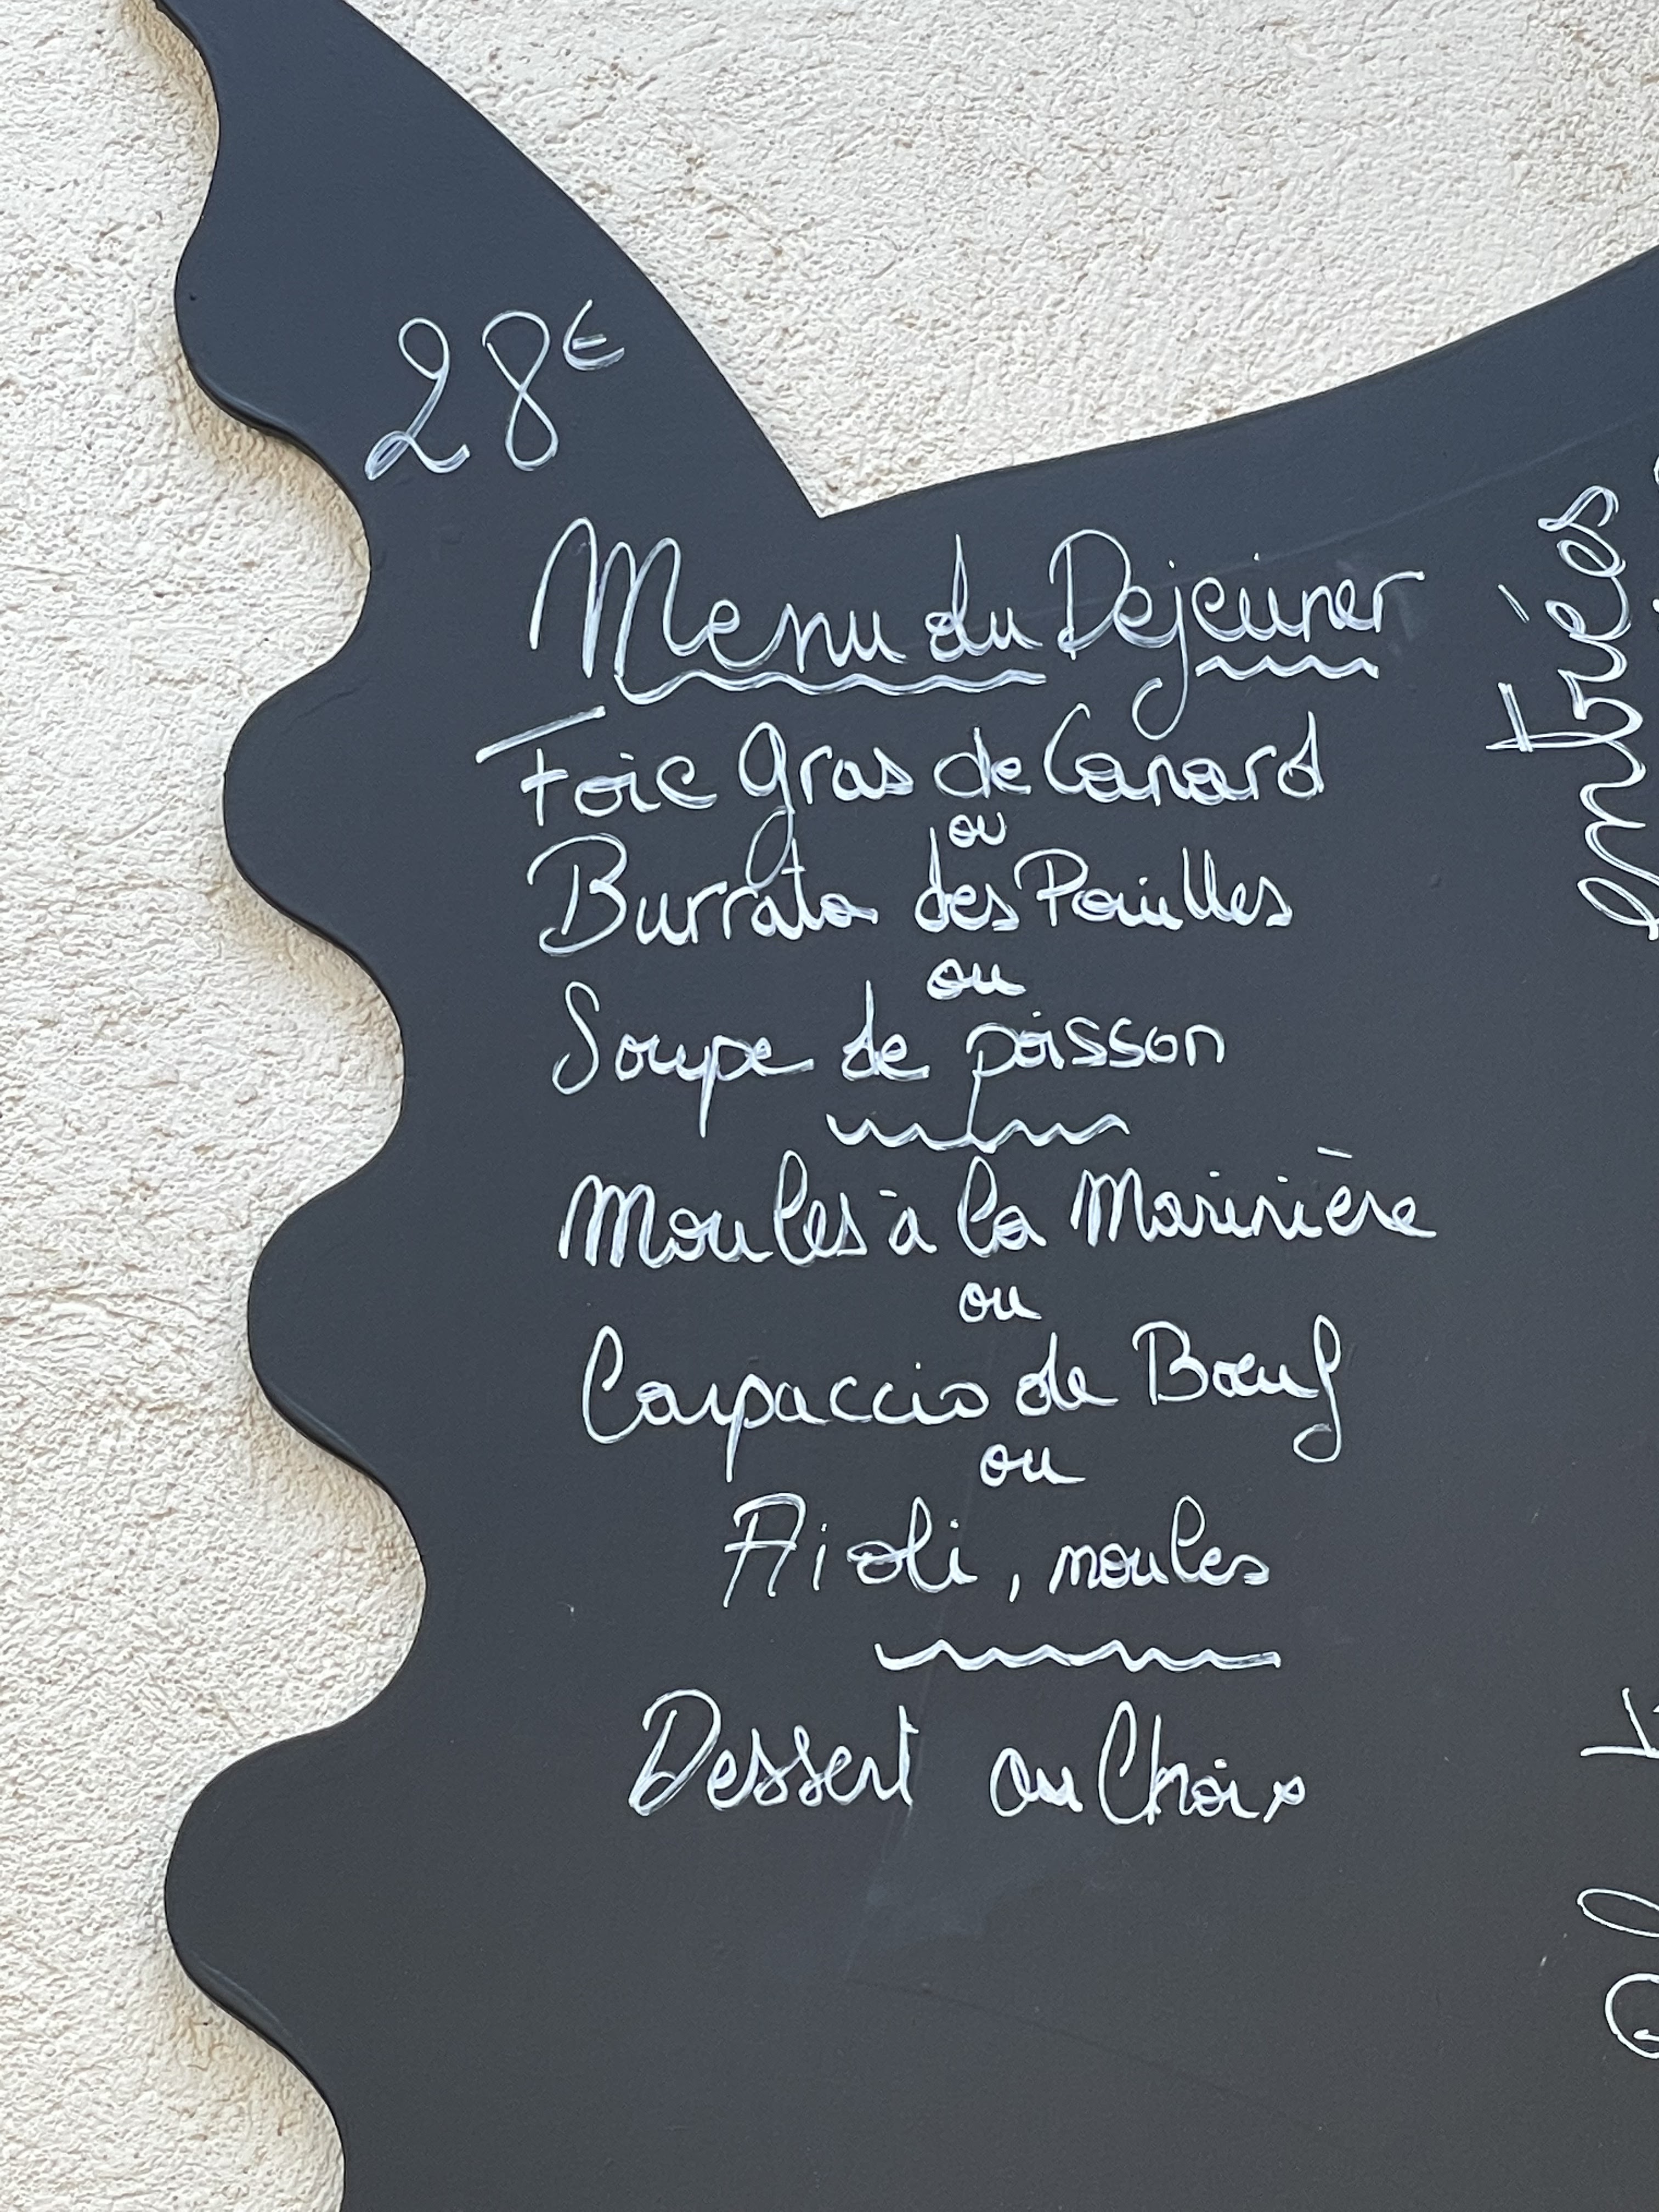 28€
Menu du Dejeuner
Foie gras de Canard
ou
Burrata des Pouilles
ou
Soupe de poisson
Moules à la Marinière
ou
Carpaccio de Bœuf
ou
Aioli, moules
Dessert au Choix
entrées